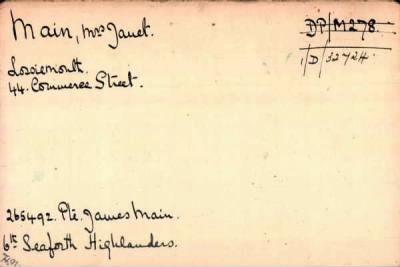 Main, Mrs Janet.
DP/M278.
1/D/32724.
Lossiemouth.
44. Commerce Street.
265492. Pte. James Main.
6th Seaforth Highlanders.